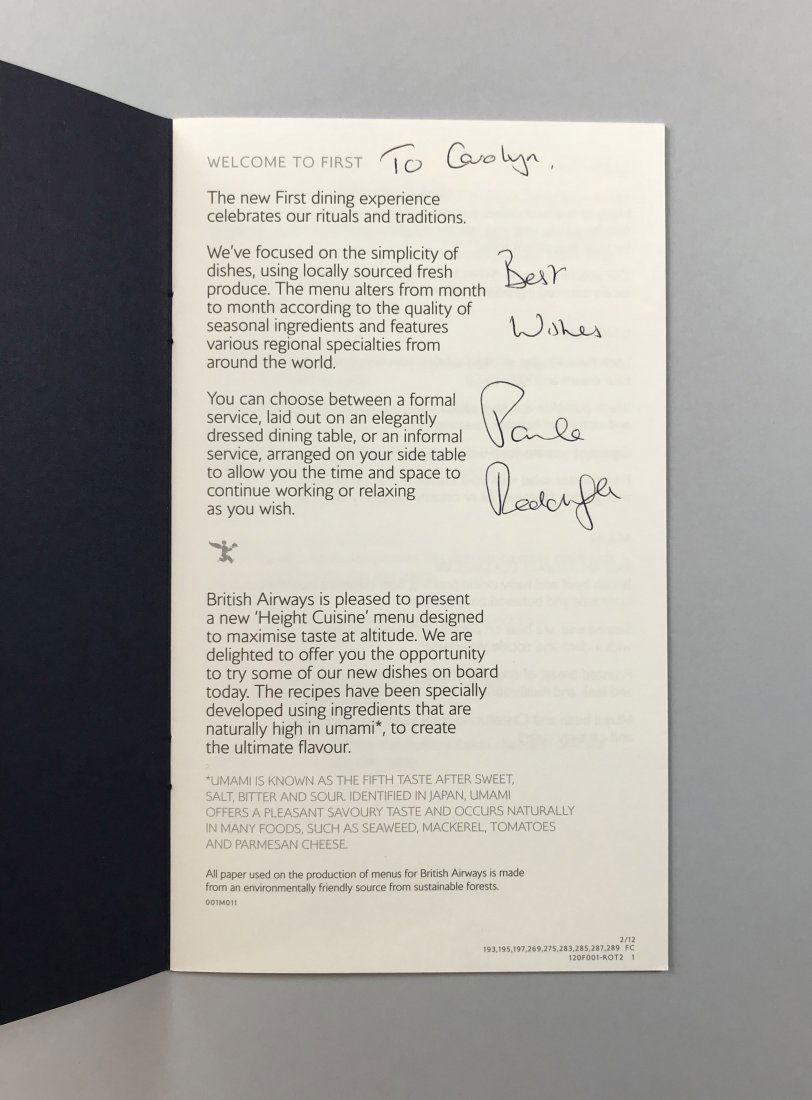 WELCOME TO FIRST To Carolyn,
The new First dining experience
celebrates our rituals and traditions.
We've focused on the simplicity of
dishes, using locally sourced fresh
produce. The menu alters from month
to month according to the quality of
seasonal ingredients and features
various regional specialties from
around the world.
Best
Wishes
You can choose between a formal
service, laid out on an elegantly
dressed dining table, or an informal
service, arranged on your side table
to allow you the time and space to
continue working or relaxing
as you wish.
Paula
British Airways is pleased to present
a new 'Height Cuisine' menu designed
to maximise taste at altitude. We are
delighted to offer you the opportunity
to try some of our new dishes on board
today. The recipes have been specially
developed using ingredients that are
naturally high in umami*, to create
the ultimate flavour.
*UMAMI IS KNOWN AS THE FIFTH TASTE AFTER SWEET,
SALT, BITTER AND SOUR. IDENTIFIED IN JAPAN, UMAMI
OFFERS A PLEASANT SAVOURY TASTE AND OCCURS NATURALLY
IN MANY FOODS, SUCH AS SEAWEED, MACKEREL, TOMATOES
AND PARMESAN CHEESE.
All paper used on the production of menus for British Airways is made
from an environmentally friendly source from sustainable forests.
001M011
2/12
193,195,197,269,275,283,285,287,289 FC
120F001-ROT2 1